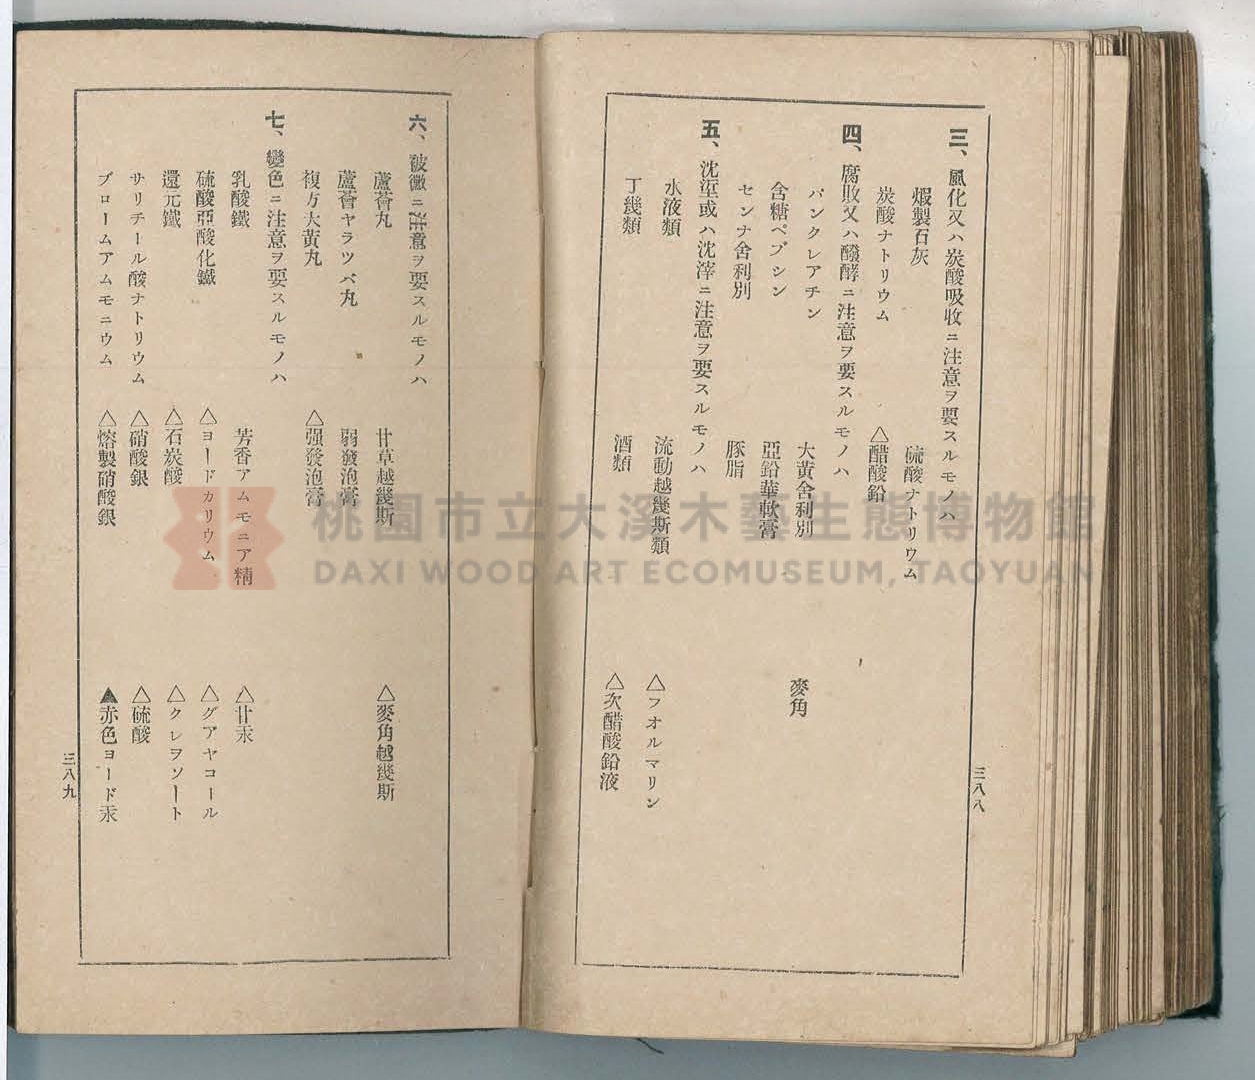 三、風化又ハ炭酸吸收ニ注意ヲ要スルモノハ
煆製石灰　硫酸ナトリウム
炭酸ナトリウム　△醋酸鉛
四、腐敗又ハ醱酵ニ注意ヲ要スルモノハ
パンクレアチン　大黃舍利別　麥角
含糖ペプシン　亞鉛華軟膏
センナ舍利別　豚脂
五、沈垽或ハ沈滓ニ注意ヲ要スルモノハ
水液類　流動越幾斯類　△フオルマリン
丁幾類　酒類　△次醋酸鉛液
三八八
六、皺黴ニ注意ヲ要スルモノハ
蘆薈丸　甘草越幾斯　△麥角越幾斯
蘆薈ヤラツパ丸　弱發泡膏
複方大黃丸　△强發泡膏
七、變色ニ注意ヲ要スルモノハ
乳酸鐵　芳香アムモニア精　△甘汞
硫酸亞酸化鐵　△ヨードカリウム　△グアヤコール
還元鐵　△石炭酸　△クレヲソート
サリチール酸ナトリウム　△硝酸銀　△硫酸
ブロームアムモニウム　△熔製硝酸銀　▲赤色ヨード汞
三八九
桃園市立大溪木藝生態博物館
DAXI WOOD ART ECOMUSEUM, TAOYUAN